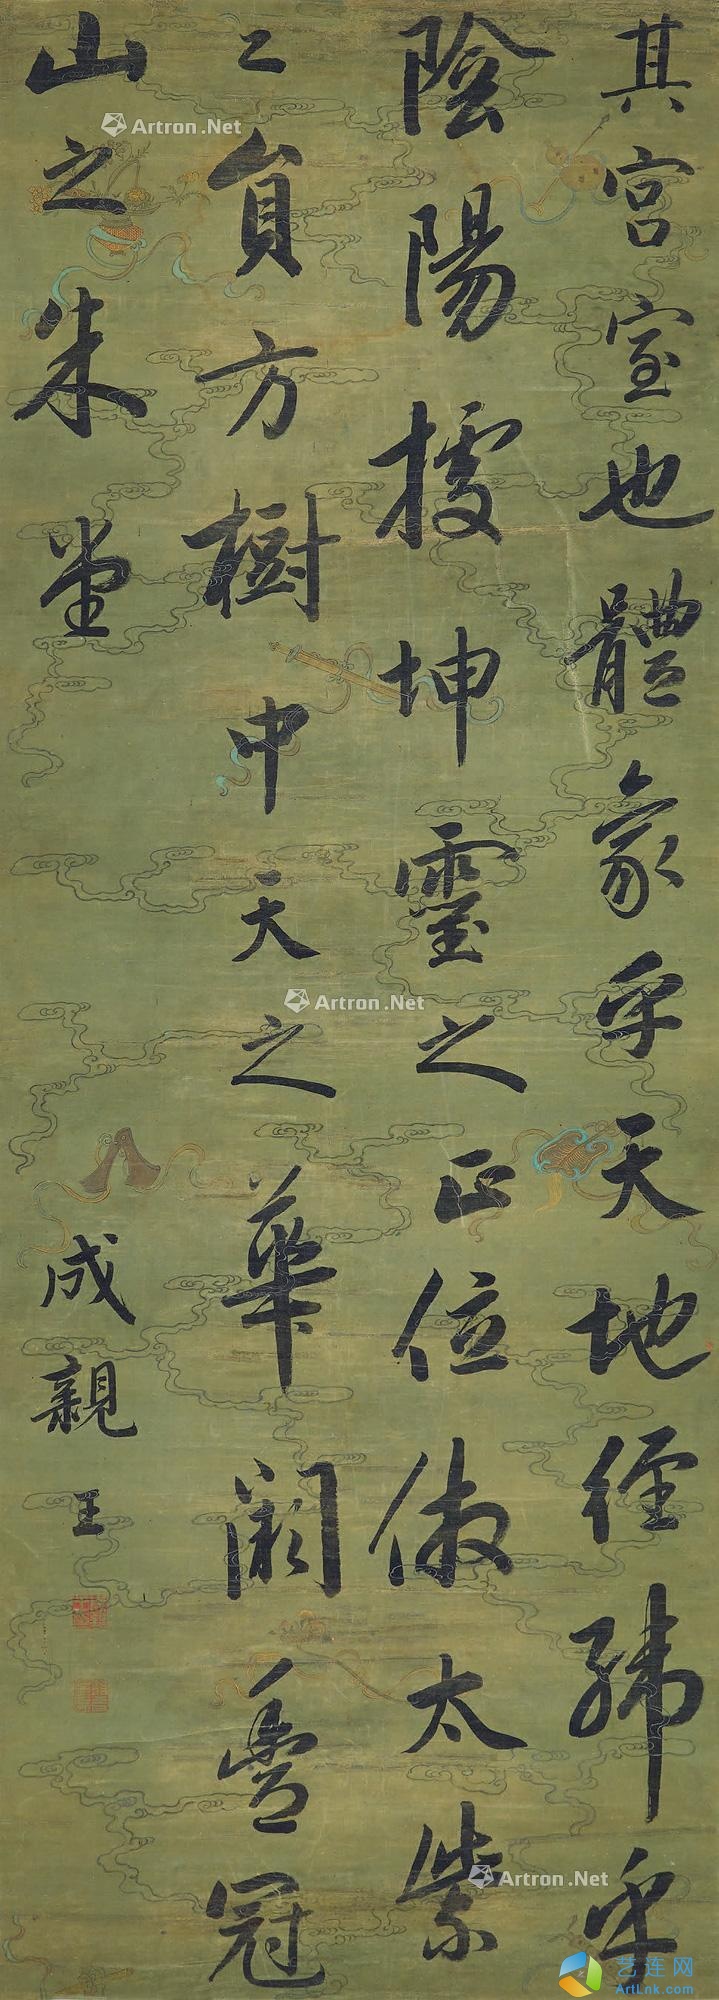 其宮室也體象乎天地經緯乎
陰陽據坤靈之正位倣太紫
之員方樹中天之華闕豐冠
山之朱堂
成親王
Artron.Net
Artron.Net
Artron.Net
Artron.Net
艺连网
ArtLnk.com